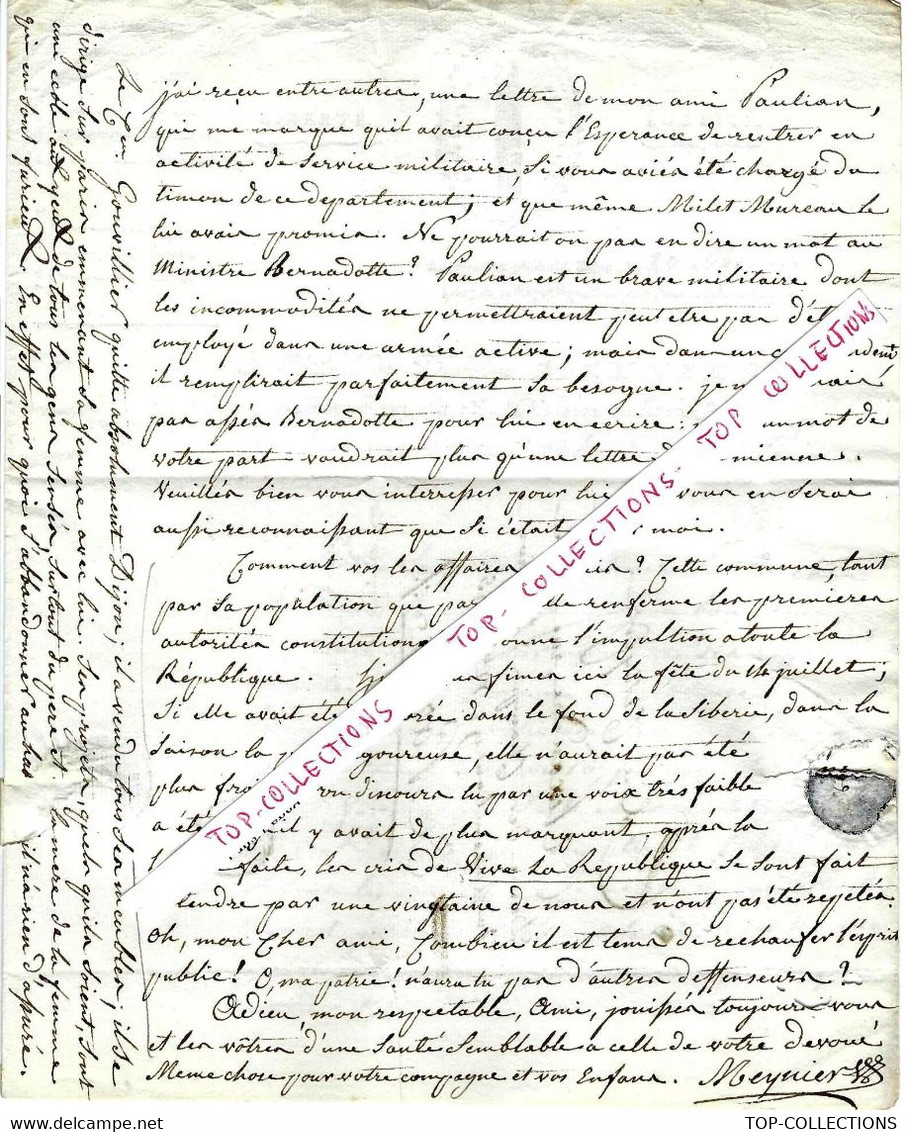 j'ai reçu entre autres, une lettre de mon ami Paulian,
qui me marque quil avait conçu l'Esperance de rentrer en
activité de service militaire, Si vous aviés été chargé du
timon de ce departement; et que même Milet Mureau le
lui avais promis. Ne pourrait on pas en dire un mot au
Ministre Bernadotte? Paulian est un brave militaire dont
les incommodités ne permettraient peut etre pas d'ét
employé dans une armée active; mais dans un
il remplirait parfaitement sa besogne. je
pas assés Bernadotte pour lui en ecrire: un mot de
votre part vaudrait plus qu'une lettre de mienne.
Veuillés bien vous interresser pour lui vous en serai
aussi reconnaissant que Si c'était moi.
Comment vos les affaires ? Cette commune, tant
par sa population que par elle renferme les premieres
autorités constitution donne l'impultion a toute la
République. fimes ici la fête du 14 juillet;
Si elle avait été dans le fond de la Siberie, dans la
saison la goureuse, elle n'aurait pas été
plus froi un discours lu par une voix trés faible
a été il y avait de plus marquant, après la
faite, les cris de Vive La République se sont fait
tendre par une vingtaine de nous et n'ont pas été repetés.
Oh, mon Cher ami, Combien il est tems de rechaufer l'ésprit
public! O, ma patrie! n'auras tu pas d'autres deffenseurs?
Adieu, mon respectable, Ami, jouissés toujours vous
et les vôtres d'une Santé Semblable a celle de votre devoué
Meme chose pour votre compagne et vos Enfans. Meynier
Le Gen. Gouvillier quitte absolument Dijon; il a vendu tous ses meubles; il se
dirige sur paris emmenant sa femme avec lui. Ses projets, quels qu'ils soient, sont
aux yeux de tous les gens sensés, surtout du pere et la mere de la femme
qui en sont furieux. En effet pour quoi s'abbandonner au has il n'a rien d'assuré.
TOP-COLLECTIONS TOP-COLLECTIONS-TOP COLLECTIONS
TOP-COLLECTIONS